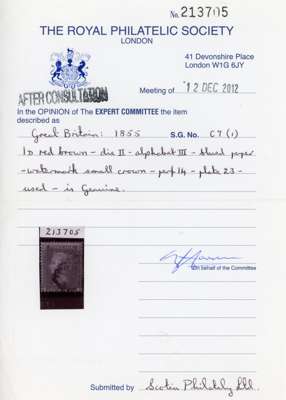 No. 213705
THE ROYAL PHILATELIC SOCIETY
LONDON
41 Devonshire Place
London W1G 6JY
AFTER CONSULTATION
Meeting of 12 DEC 2012
In the OPINION of The EXPERT COMMITTEE the item
described as
Great Britain: 1855 S.G. No. C7 (1)
1D red brown - die II - alphabet III - blued paper
- watermark small crown - perf 14 - plate 23 -
used - is Genuine.
213705
on behalf of the Committee
Submitted by Scotia Philately Ltd.